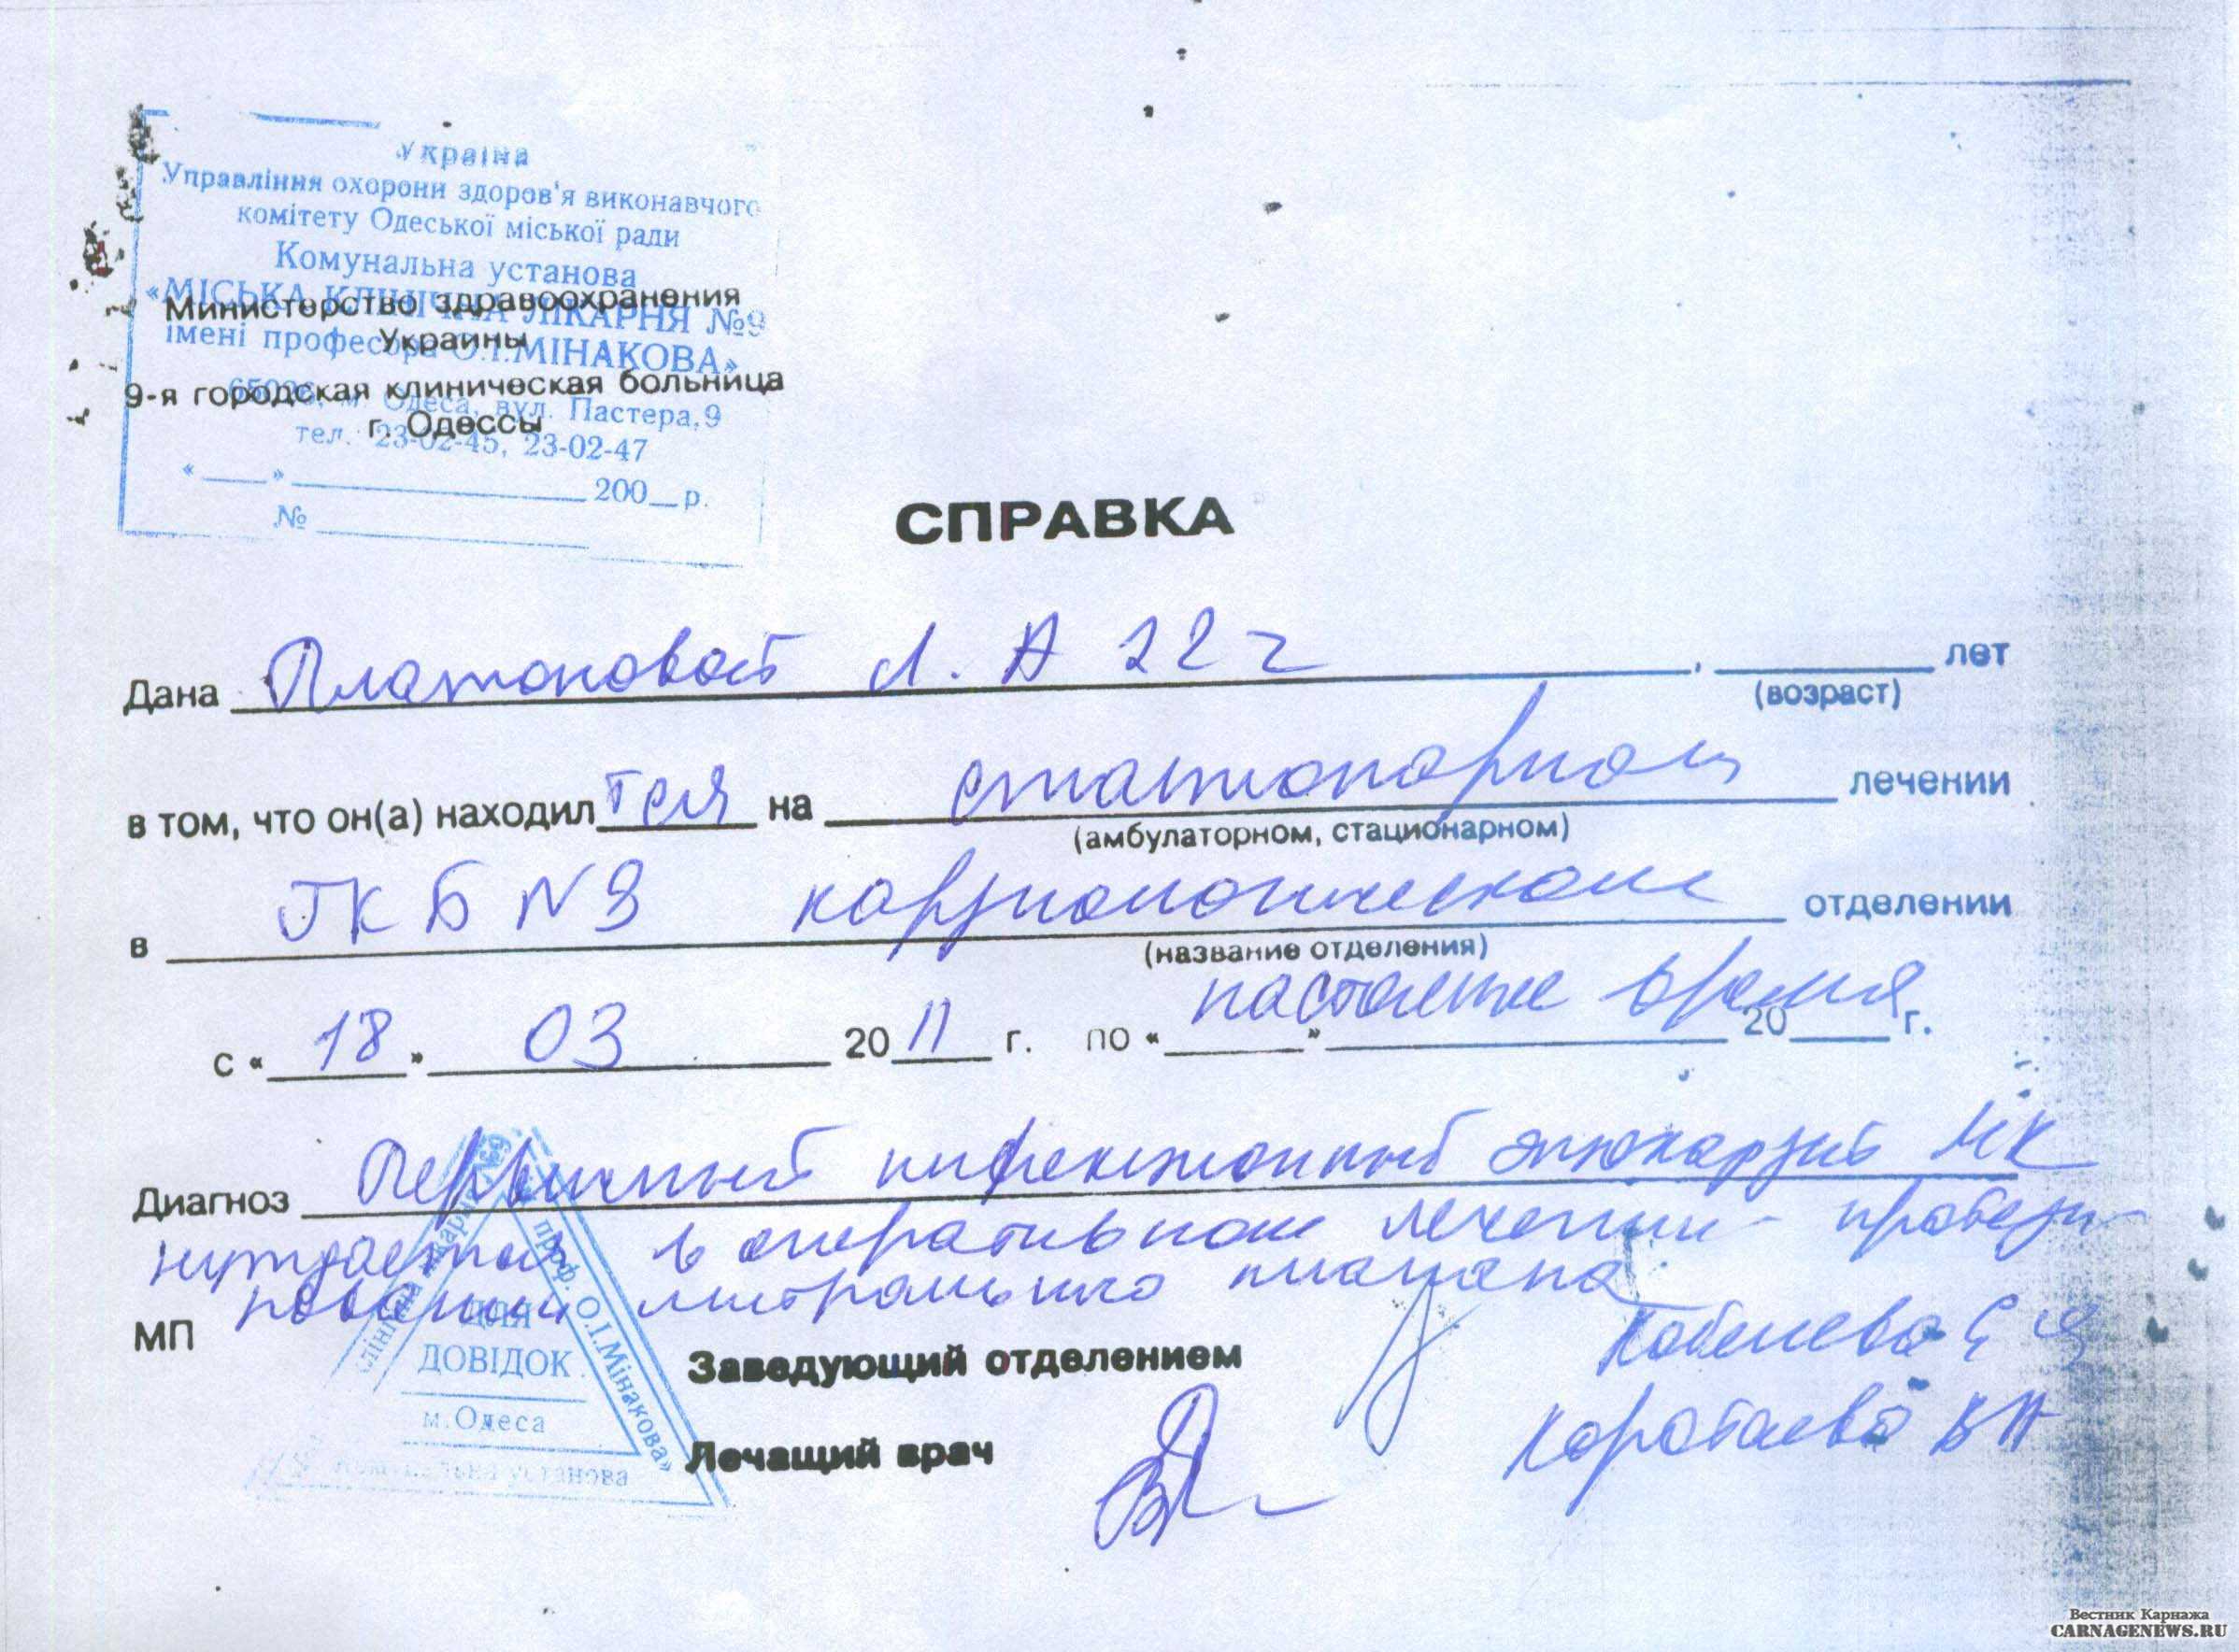 Україна
Управління охорони здоров'я виконавчого
комітету Одеської міської ради
Комунальна установа
«МІСЬКА КЛІНІЧНА ЛІКАРНЯ №9
імені професора О.І.МІНАКОВА»
65026, м. Одеса, вул. Пастера,9
тел. 23-02-45, 23-02-47
«___»__________ 200__р.
№ __________
Министерство здравоохранения
Украины
9-я городская клиническая больница
г. Одессы
СПРАВКА
Дана Платоновой Л. А 22 г , ______ лет
(возраст)
в том, что он(а) находил тся на стационарном лечении
(амбулаторном, стационарном)
в ГКБ N 9 кардиологическом отделении
(название отделения)
с «18» 03 2011 г. по «___» настоящее время 20___ г.
Диагноз Первичный инфекционный эндокардит МК
нуждается в оперативном лечении - протези-
ровании митрального клапана
МП
Заведующий отделением
Лечащий врач Коротаева ВН
клінічна лікарня №9
проф. О.І.Мінакова»
ДЛЯ
ДОВІДОК
м.Одеса
Комунальна установа
Вестник Карнажа
CARNAGENEWS.RU